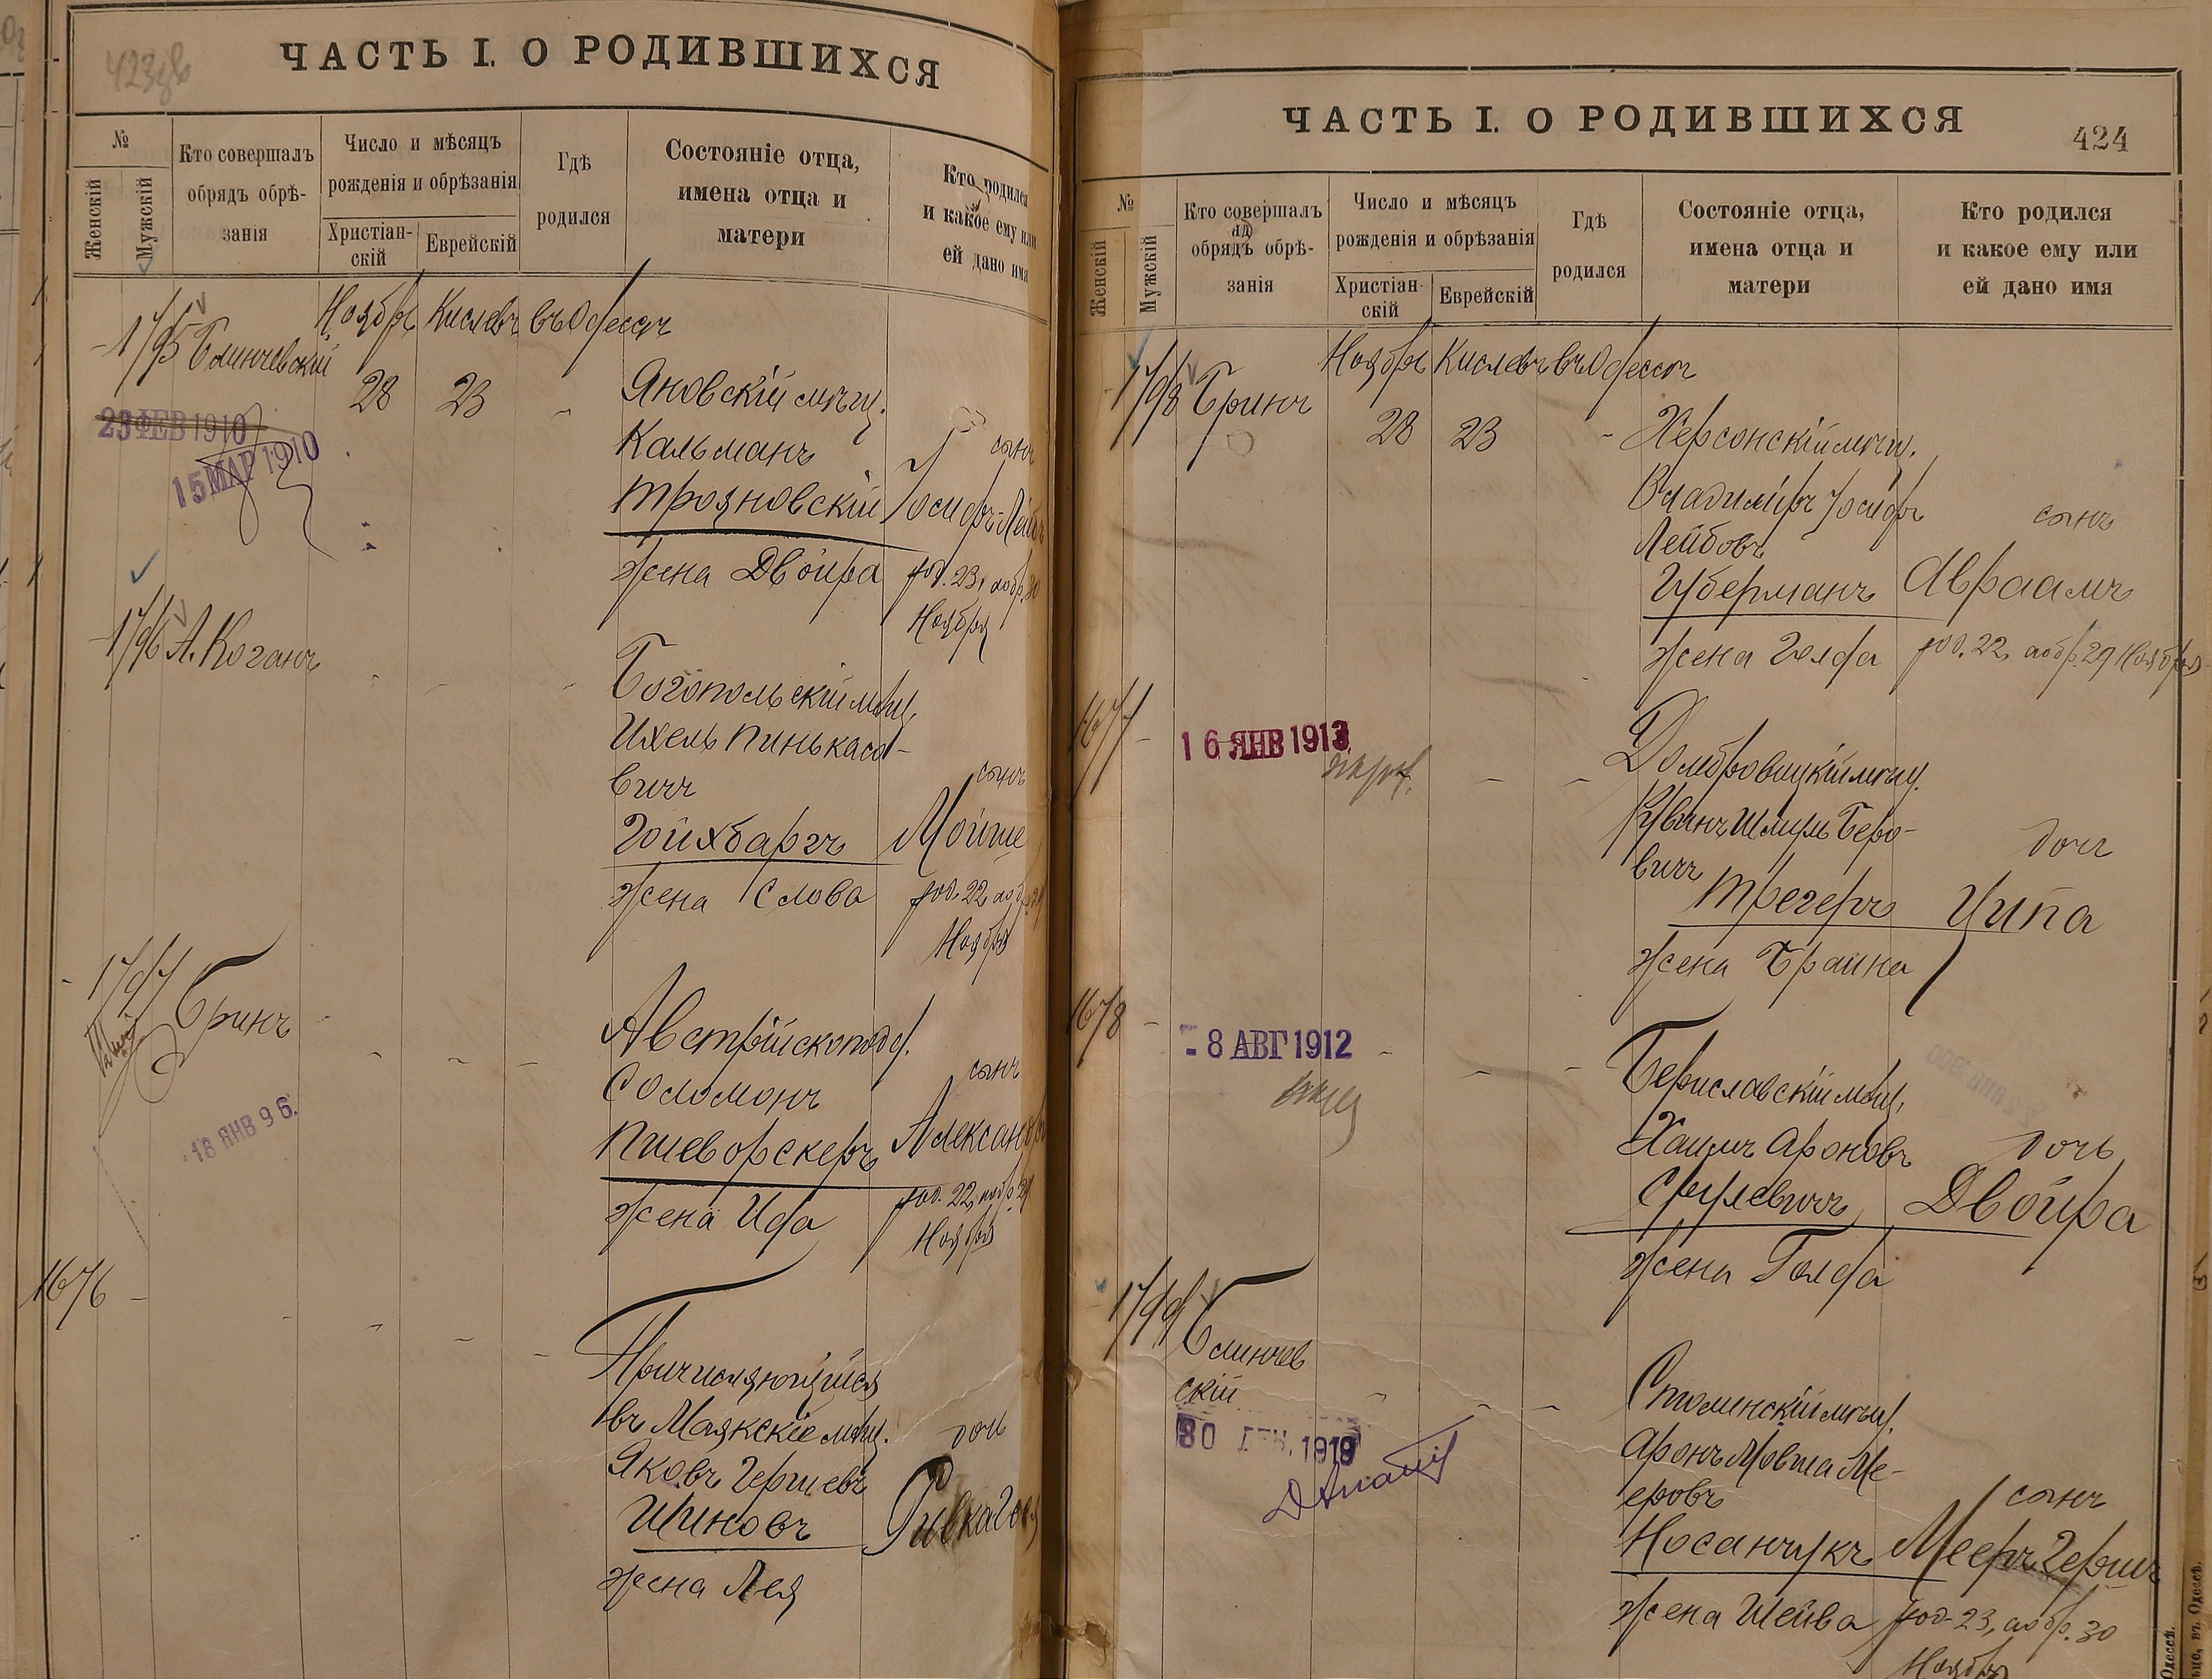 423об
ЧАСТЬ I. О РОДИВШИХСЯ
№
Женскій
Мужскій
Кто совершалъ
обрядъ обрѣ-
занія
Число и мѣсяцъ
рожденія и обрѣзанія
Христіан-
скій
Еврейскій
Гдѣ
родился
Состояніе отца,
имена отца и
матери
Кто родился
и какое ему или
ей дано имя
Ноябрь Кислевъ въ Одессѣ
1795 Блинчевскій
28 23 Яновскій мѣщ.
23 ФЕВ 1910
15 МАР 1910
Кальманъ сынъ
Трояновскій Іосифъ-Лейбъ
жена Двойра род. 23, а обр. 30
Ноября
1796 А. Коганъ
Богопольскій мѣщ.
Ихель Пинькасо-
вичъ сынъ
Гойхбаргъ Мойше
жена Слова род. 22, а обр. 29
Ноября
1797 Бринъ
Австрійско подд.
Соломонъ сынъ
18 ЯНВ 96.
Пшеворскеръ Александръ
жена Ида род. 22, а обр. 29
Ноября
1676
Причисляющійся
въ Маякскіе мѣщ. дочь
Яковъ Гершевъ
Шиновъ Ривка Гося
жена Лея
ЧАСТЬ I. О РОДИВШИХСЯ
424
№
Женскій
Мужскій
Кто совершалъ
обрядъ обрѣ-
занія
Число и мѣсяцъ
рожденія и обрѣзанія
Христіан-
скій
Еврейскій
Гдѣ
родился
Состояніе отца,
имена отца и
матери
Кто родился
и какое ему или
ей дано имя
Ноябрь Кислевъ въ Одессѣ
1798 Бринъ
28 23 Херсонскій мѣщ.
Владиміръ Іосифъ сынъ
Лейбовъ
Губерманъ Авраамъ
жена Голда род. 22, а обр. 29 Ноября
1677
16 ЯНВ 1913
Домбровицкій мѣщ.
Иванъ Шмуль Беро- дочь
вичъ
Трегеръ Ципа
жена Брайна
1678
- 8 АВГ 1912
Бериславскій мѣщ.
Хаимъ Ароновъ дочь
Срулевичъ Двойра
жена Голда
1799 Блинчев
скій
30 ДЕК. 1919
Столинскій мѣщ.
Аронъ Мовша Ме-
еровъ сынъ
Носанчукъ Мееръ Гершъ
жена Шейва род. 23, а обр. 30
Ноября
Одессѣ.
въ Одессѣ.